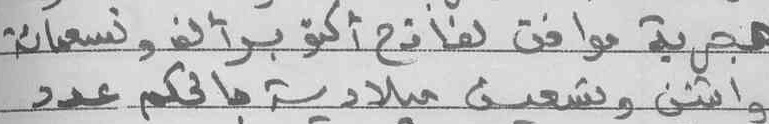 هجرية موافق لفاتح أكتوبر ألف وتسعمائة
واثنين وتسعين ميلادية ما لكم عدد